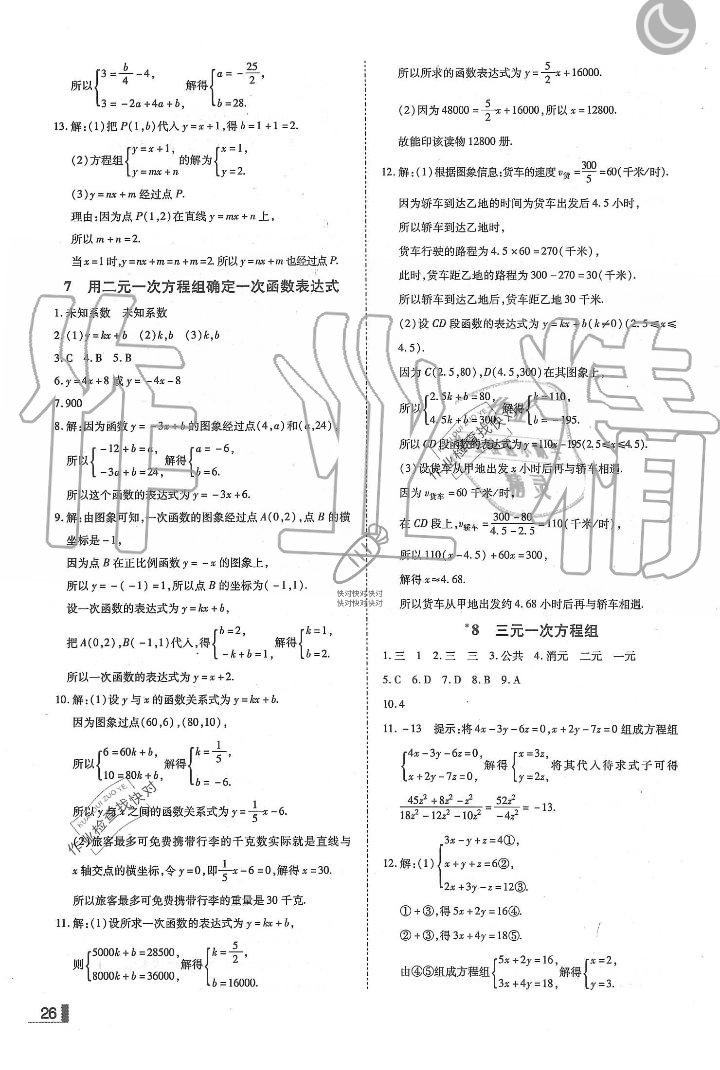 所以{3=b/4-4, 3=-2a+4a+b, 解得{a=-25/2, b=28.
13.解:(1)把P(1,b)代入y=x+1,得b=1+1=2.
(2)方程组{y=x+1, y=mx+n 的解为{x=1, y=2.
(3)y=nx+m经过点P.
理由:因为点P(1,2)在直线y=mx+n上,
所以m+n=2.
当x=1时,y=nx+m=n+m=2.所以y=nx+m也经过点P.
7 用二元一次方程组确定一次函数表达式
1.未知系数 未知系数
2.(1)y=kx+b (2)k,b (3)k,b
3.C 4.B 5.B
6.y=4x+8或y=-4x-8
7.900
8.解:因为函数y=-3x+b的图象经过点(4,a)和(a,24),
所以{-12+b=a, -3a+b=24, 解得{a=-6, b=6.
所以这个函数的表达式为y=-3x+6.
9.解:由图象可知,一次函数的图象经过点A(0,2),点B的横
坐标是-1,
因为点B在正比例函数y=-x的图象上,
所以y=-(-1)=1,所以点B的坐标为(-1,1).
设一次函数的表达式为y=kx+b,
把A(0,2),B(-1,1)代入,得{b=2, -k+b=1, 解得{k=1, b=2.
所以一次函数的表达式为y=x+2.
10.解:(1)设y与x的函数关系式为y=kx+b.
因为图象过点(60,6),(80,10),
所以{6=60k+b, 10=80k+b, 解得{k=1/5, b=-6.
所以y与x之间的函数关系式为y=1/5x-6.
(2)旅客最多可免费携带行李的千克数实际就是直线与
x轴交点的横坐标,令y=0,即1/5x-6=0,解得x=30.
所以旅客最多可免费携带行李的重量是30千克.
11.解:(1)设所求一次函数的表达式为y=kx+b,
则{5000k+b=28500, 8000k+b=36000, 解得{k=5/2, b=16000.
26
所以所求的函数表达式为y=5/2x+16000.
(2)因为48000=5/2x+16000,所以x=12800.
故能印该读物12800册.
12.解:(1)根据图象信息:货车的速度v货=300/5=60(千米/时).
因为轿车到达乙地的时间为货车出发后4.5小时,
所以轿车到达乙地时,
货车行驶的路程为4.5×60=270(千米),
此时,货车距乙地的路程为300-270=30(千米).
所以轿车到达乙地后,货车距乙地30千米.
(2)设CD段函数的表达式为y=kx+b(k≠0)(2.5≤x≤
4.5).
因为C(2.5,80),D(4.5,300)在其图象上,
所以{2.5k+b=80, 4.5k+b=300, 解得{k=110, b=-195.
所以CD段函数的表达式为y=110x-195(2.5≤x≤4.5).
(3)设货车从甲地出发x小时后再与轿车相遇.
因为v货车=60千米/时,
在CD段上,v轿车=300-80/4.5-2.5=110(千米/时),
所以110(x-4.5)+60x=300,
解得x≈4.68.
所以货车从甲地出发约4.68小时后再与轿车相遇.
*8 三元一次方程组
1.三 1 2.三 三 3.公共 4.消元 二元 一元
5.C 6.D 7.D 8.B 9.A
10.4
11.-13 提示:将4x-3y-6z=0,x+2y-7z=0组成方程组
{4x-3y-6z=0, x+2y-7z=0, 解得{x=3z, y=2z, 将其代入待求式子可得
45z²+8z²-z²/18z²-12z²-10z²=52z²/-4z²=-13.
12.解:(1){3x-y+z=4①, x+y+z=6②, 2x+3y-z=12③.
①+③,得5x+2y=16④.
②+③,得3x+4y=18⑤.
由④⑤组成方程组{5x+2y=16, 3x+4y=18, 解得{x=2, y=3.
作业精灵
作业检查找快对
KUAI DUI ZUO YE
快对快对快对
快对快对快对
作业检查找快对
KUAI DUI ZUO YE